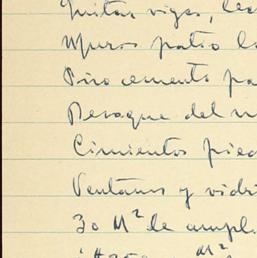 Quitar vigas,
Muros patio la
Piso cemento pa
Desague del
Cimientos pied
Ventanas y vidri
30 M² de ampl.
M²